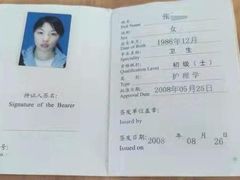 持证人签名:
Signature of the Bearer
号:
姓名: 张
Full Name
性别: 女
Sex
出生年月: 1986年12月
Date of Birth
专业名称: 卫生
Speciality
资格级别: 初级（士）
Qualification Level
类别: 护理学
批准日期: 2008年05月25日
Approval Date
签发单位盖章:
Issued by
签发日期: 2008 08 26
Issued on